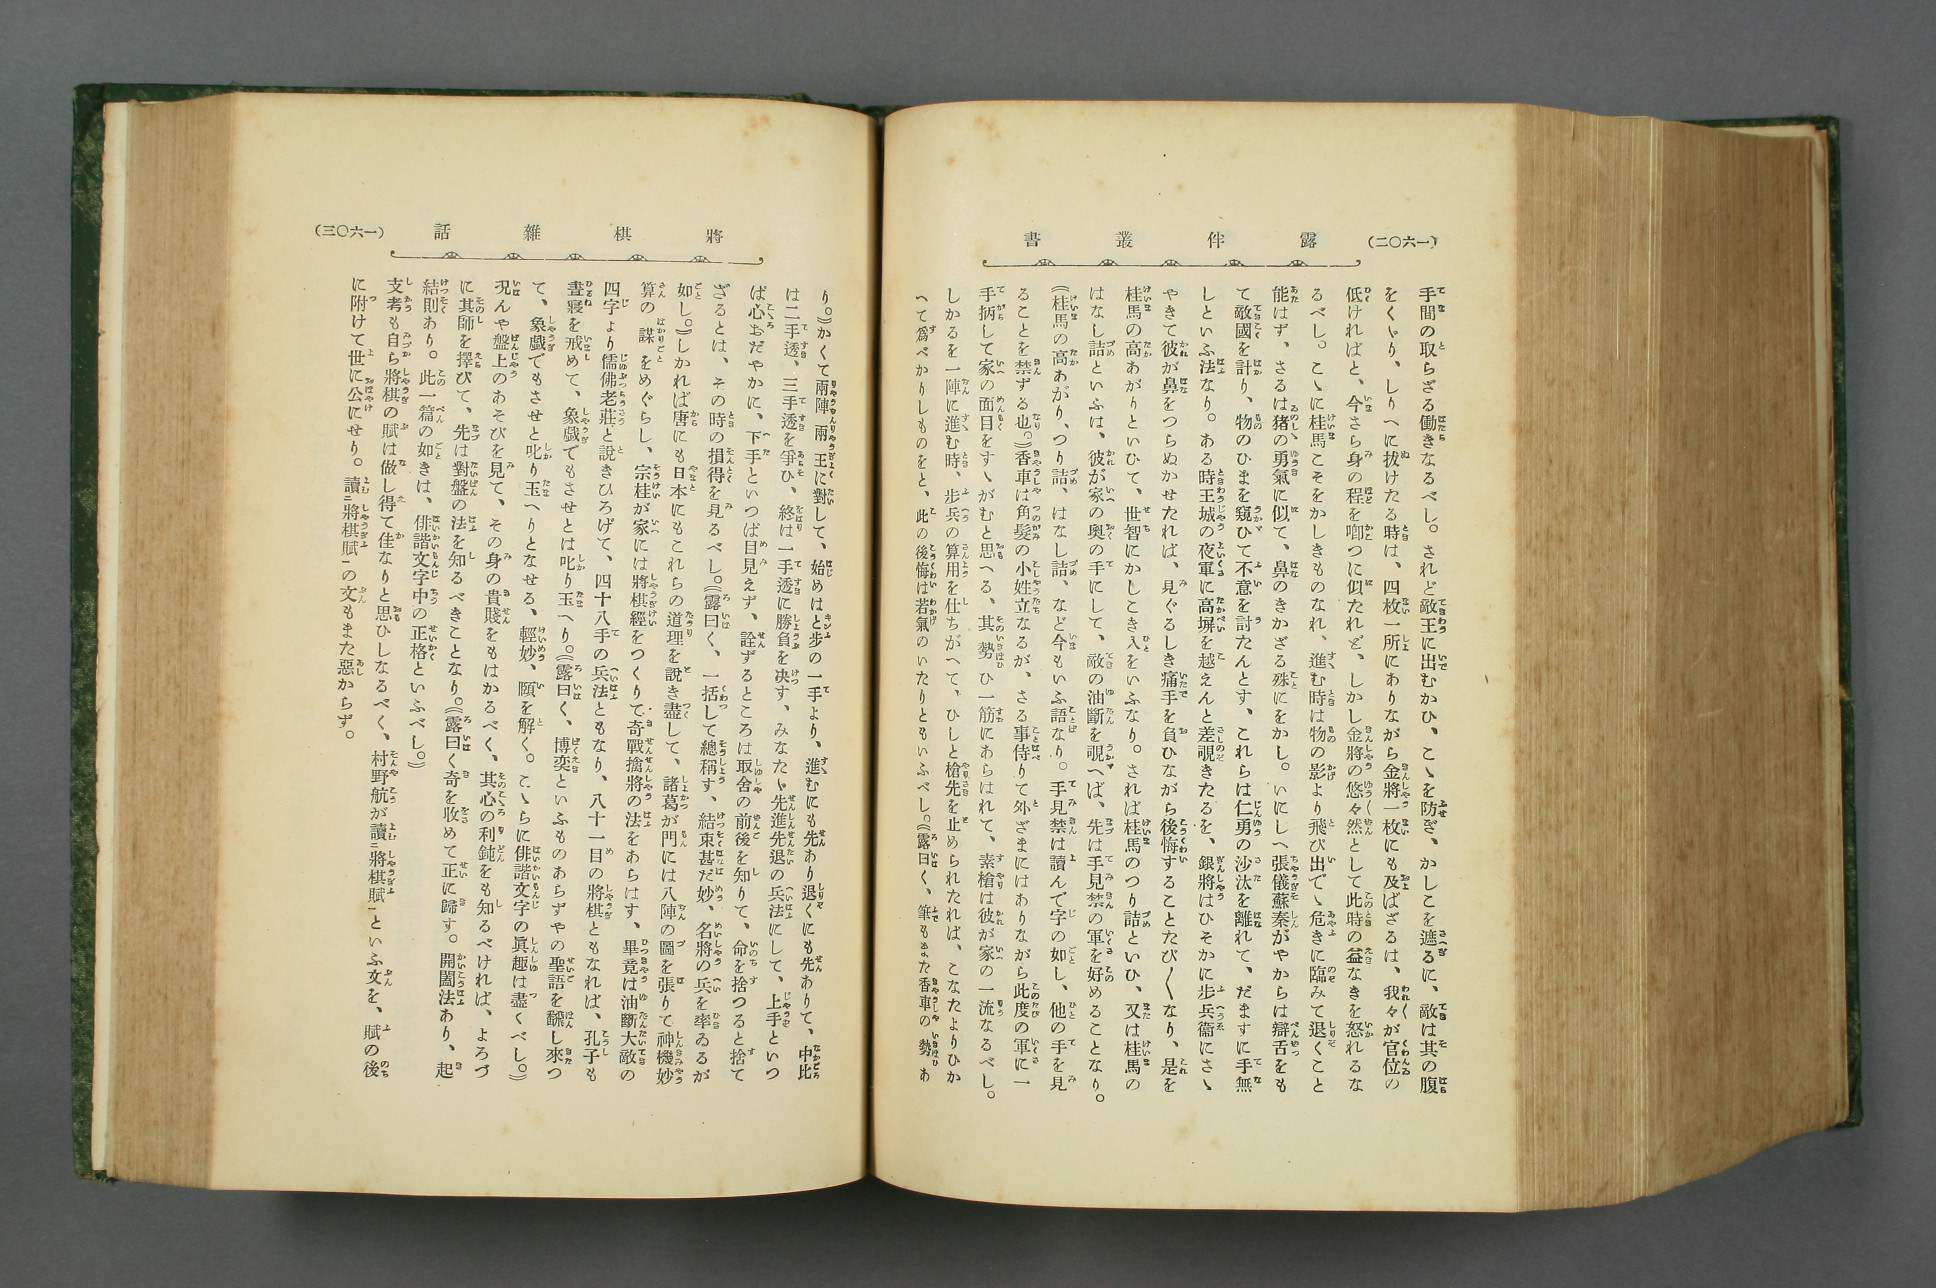 (一六〇二) 露伴叢書
手間の取らざる働きなるべし。されど敵王に出むかひ、こゝを防ぎ、かしこを遮るに、敵は其の腹
をくゝり、しりへに拔けたる時は、四枚一所にありながら金將一枚にも及ばざるは、我々が官位の
低ければと、今さら身の程を啣つに似たれど、しかし金將の悠々然として此時の益なきを怒れるな
るべし。こゝに桂馬こそをかしきものなれ、進む時は物の影より飛び出でゝ危きに臨みて退くこと
能はず、さるは猪の勇氣に似て、鼻のきかざる殊にをかし。いにしへ張儀蘇秦がやからは辯舌をも
て敵國を計り、物のひまを窺ひて不意を討たんとす、これらは仁勇の沙汰を離れて、だますに手無
しといふ法なり。ある時王城の夜軍に高塀を越えんと差覗きたるを、銀將はひそかに步兵衞にさゝ
やきて彼が鼻をつらぬかせたれば、見ぐるしき痛手を負ひながら後悔することたび〱なり、是を
桂馬の高あがりといひて、世智にかしこき人をいふなり。されば桂馬のつり詰といひ、又は桂馬の
はなし詰といふは、彼が家の奧の手にして、敵の油斷を覗へば、先は手見禁の軍を好めることなり。
《桂馬の高あがり、つり詰、はなし詰、など今もいふ語なり。手見禁は讀んで字の如し、他の手を見
ることを禁ずる也。》香車は角髮の小姓立なるが、さる事侍りて外ざまにはありながら此度の軍に一
手柄して家の面目をすゝがむと思へる、其勢ひ一筋にあらはれて、素槍は彼が家の一流なるべし。
しかるを一陣に進む時、步兵の算用を仕ちがへて、ひしと槍先を止められたれば、こなたよりひか
へて爲べかりしものをと、此の後悔は若氣のいたりともいふべし。《露曰く、筆もまた香車の勢あ
將棋雜話 (一六〇三)
り。》かくて兩陣兩王に對して、始めはと步の一手より、進むにも先あり退くにも先ありて、中比
は二手透、三手透を爭ひ、終は一手透に勝負を決す、みなたゞ先進先退の兵法にして、上手といつ
ば心おだやかに、下手といつば目見えず、詮ずるところは取舍の前後を知りて、命を捨つると捨て
ざるとは、その時の損得を見るべし。《露曰く、一括して總稱す、結束甚だ妙、名將の兵を率ゐるが
如し。》しかれば唐にも日本にもこれらの道理を說き盡して、諸葛が門には八陣の圖を張りて神機妙
算の謀をめぐらし、宗桂が家には將棋經をつくりて奇戰擒將の法をあらはす、畢竟は油斷大敵の
四字より儒佛老莊と說きひろげて、四十八手の兵法ともなり、八十一目の將棋ともなれば、孔子も
晝寢を戒めて、象戲でもさせとは叱り玉へり。《露曰く、博奕といふものあらずやの聖語を飜し來つ
て、象戲でもさせと叱り玉へりとなせる、輕妙、頤を解く。こゝらに俳諧文字の眞趣は盡くべし。》
況んや盤上のあそびを見て、その身の貴賤をもはかるべく、其心の利鈍をも知るべければ、よろづ
に其師を擇びて、先は對盤の法を知るべきことなり。《露曰く奇を收めて正に歸す。開闔法あり、起
結則あり。此一篇の如きは、俳諧文字中の正格といふべし。》
支考も自ら將棋の賦は做し得て佳なりと思ひしなるべく、村野航が讀ニ將棋賦一といふ文を、賦の後
に附けて世に公にせり。讀ニ將棋賦一の文もまた惡からず。